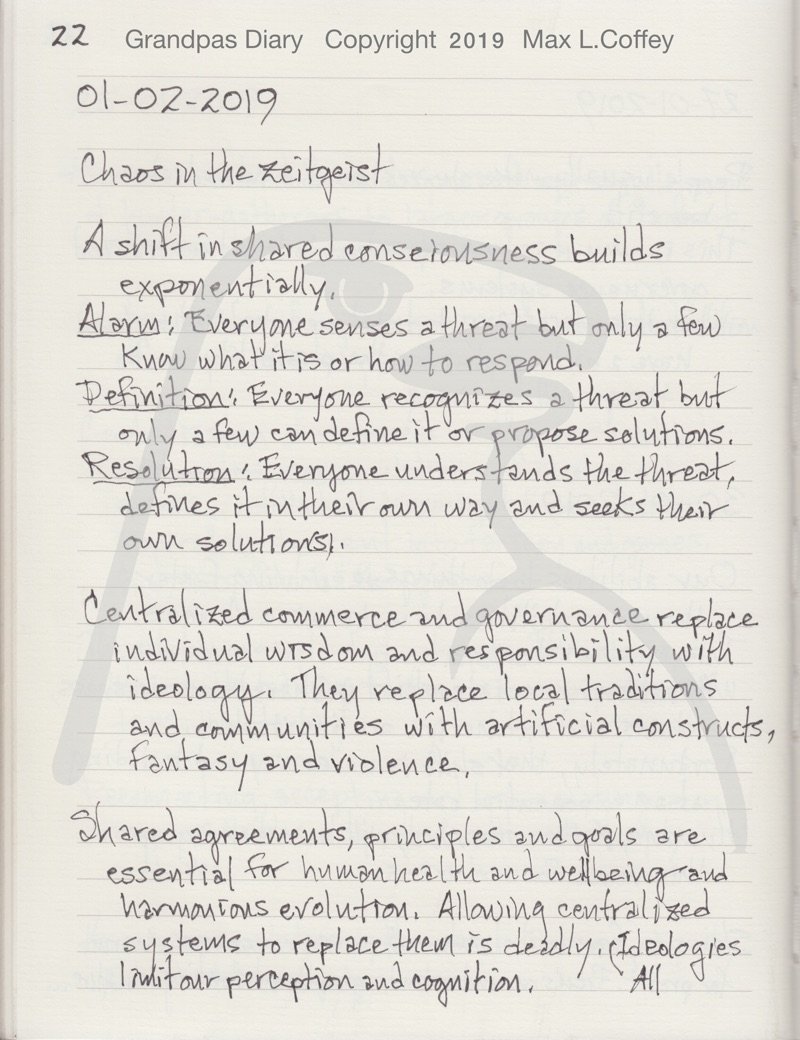 22 Grandpas Diary Copyright 2019 Max L.Coffey
01-02-2019
Chaos in the zeitgeist
A shift in shared consciousness builds
exponentially.
Alarm: Everyone senses a threat but only a few
know what it is or how to respond.
Definition: Everyone recognizes a threat but
only a few can define it or propose solutions.
Resolution: Everyone understands the threat,
defines it in their own way and seeks their
own solution(s).
Centralized commerce and governance replace
individual wisdom and responsibility with
ideology. They replace local traditions
and communities with artificial constructs,
fantasy and violence.
Shared agreements, principles and goals are
essential for human health and wellbeing and
harmonious evolution. Allowing centralized
systems to replace them is deadly. (Ideologies
limit our perception and cognition. All